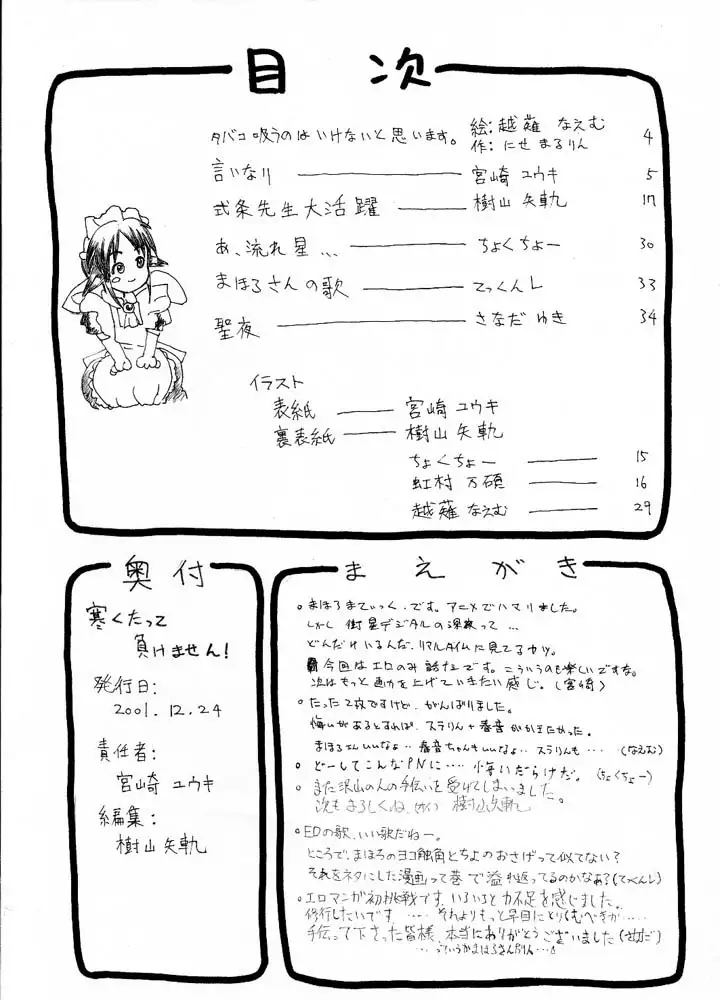 目次
タバコ吸うのはいけないと思います。 絵:越薙 なえむ 4
作:にせ まるりん
言いなり 宮崎 ユウキ 5
式条先生大活躍 樹山 矢軌 17
あ、流れ星... ちょくちょー 30
まほろさんの歌 てっくんL 33
聖夜 さなだ ゆき 34
イラスト
表紙 宮崎 ユウキ
裏表紙 樹山 矢軌
ちょくちょー 15
虹村 万碩 16
越薙 なえむ 29
奥付
寒くたって
負けません!
発行日:
2001.12.24
責任者:
宮崎 ユウキ
編集:
樹山 矢軌
まえがき
○まほろまてぃっく.です。アニメでハマりました。
しかし 衛星デジタルの深夜って...
どんだけいるんだ、リアルタイムに見てるヤツ。
今回はエロのみ 話ナシです。こういうのも楽しいですな。
次はもっと画力を上げていきたい感じ。(宮崎)
○たった2枚ですけど、がんばりました。
悔いがあるとすれば、スラりん+春音がかきたかった。
まほろさんいいなぁ‥ 春音ちゃんもいいなぁ‥ スラりんも‥‥ (なえむ)
○どーしてこんなPNに‥‥ 悔いだらけだ。(ちょくちょー)
○また沢山の人の手伝いを受けてしまいました。
次もよろしくね. 樹山矢軌
○EDの歌、いい歌だねー。
ところで、まほろのヨコ触角とちよのおさげって似てない?
それをネタにした漫画って巷で溢れ返ってるのかなぁ?(てっくんL)
○エロマンガ初挑戦です、いろいろと力不足を感じました。
修行したいです ‥‥ それよりもっと早目にとりくむべきが‥‥
手伝って下さった皆様、本当にありがとうございました(さなだ)